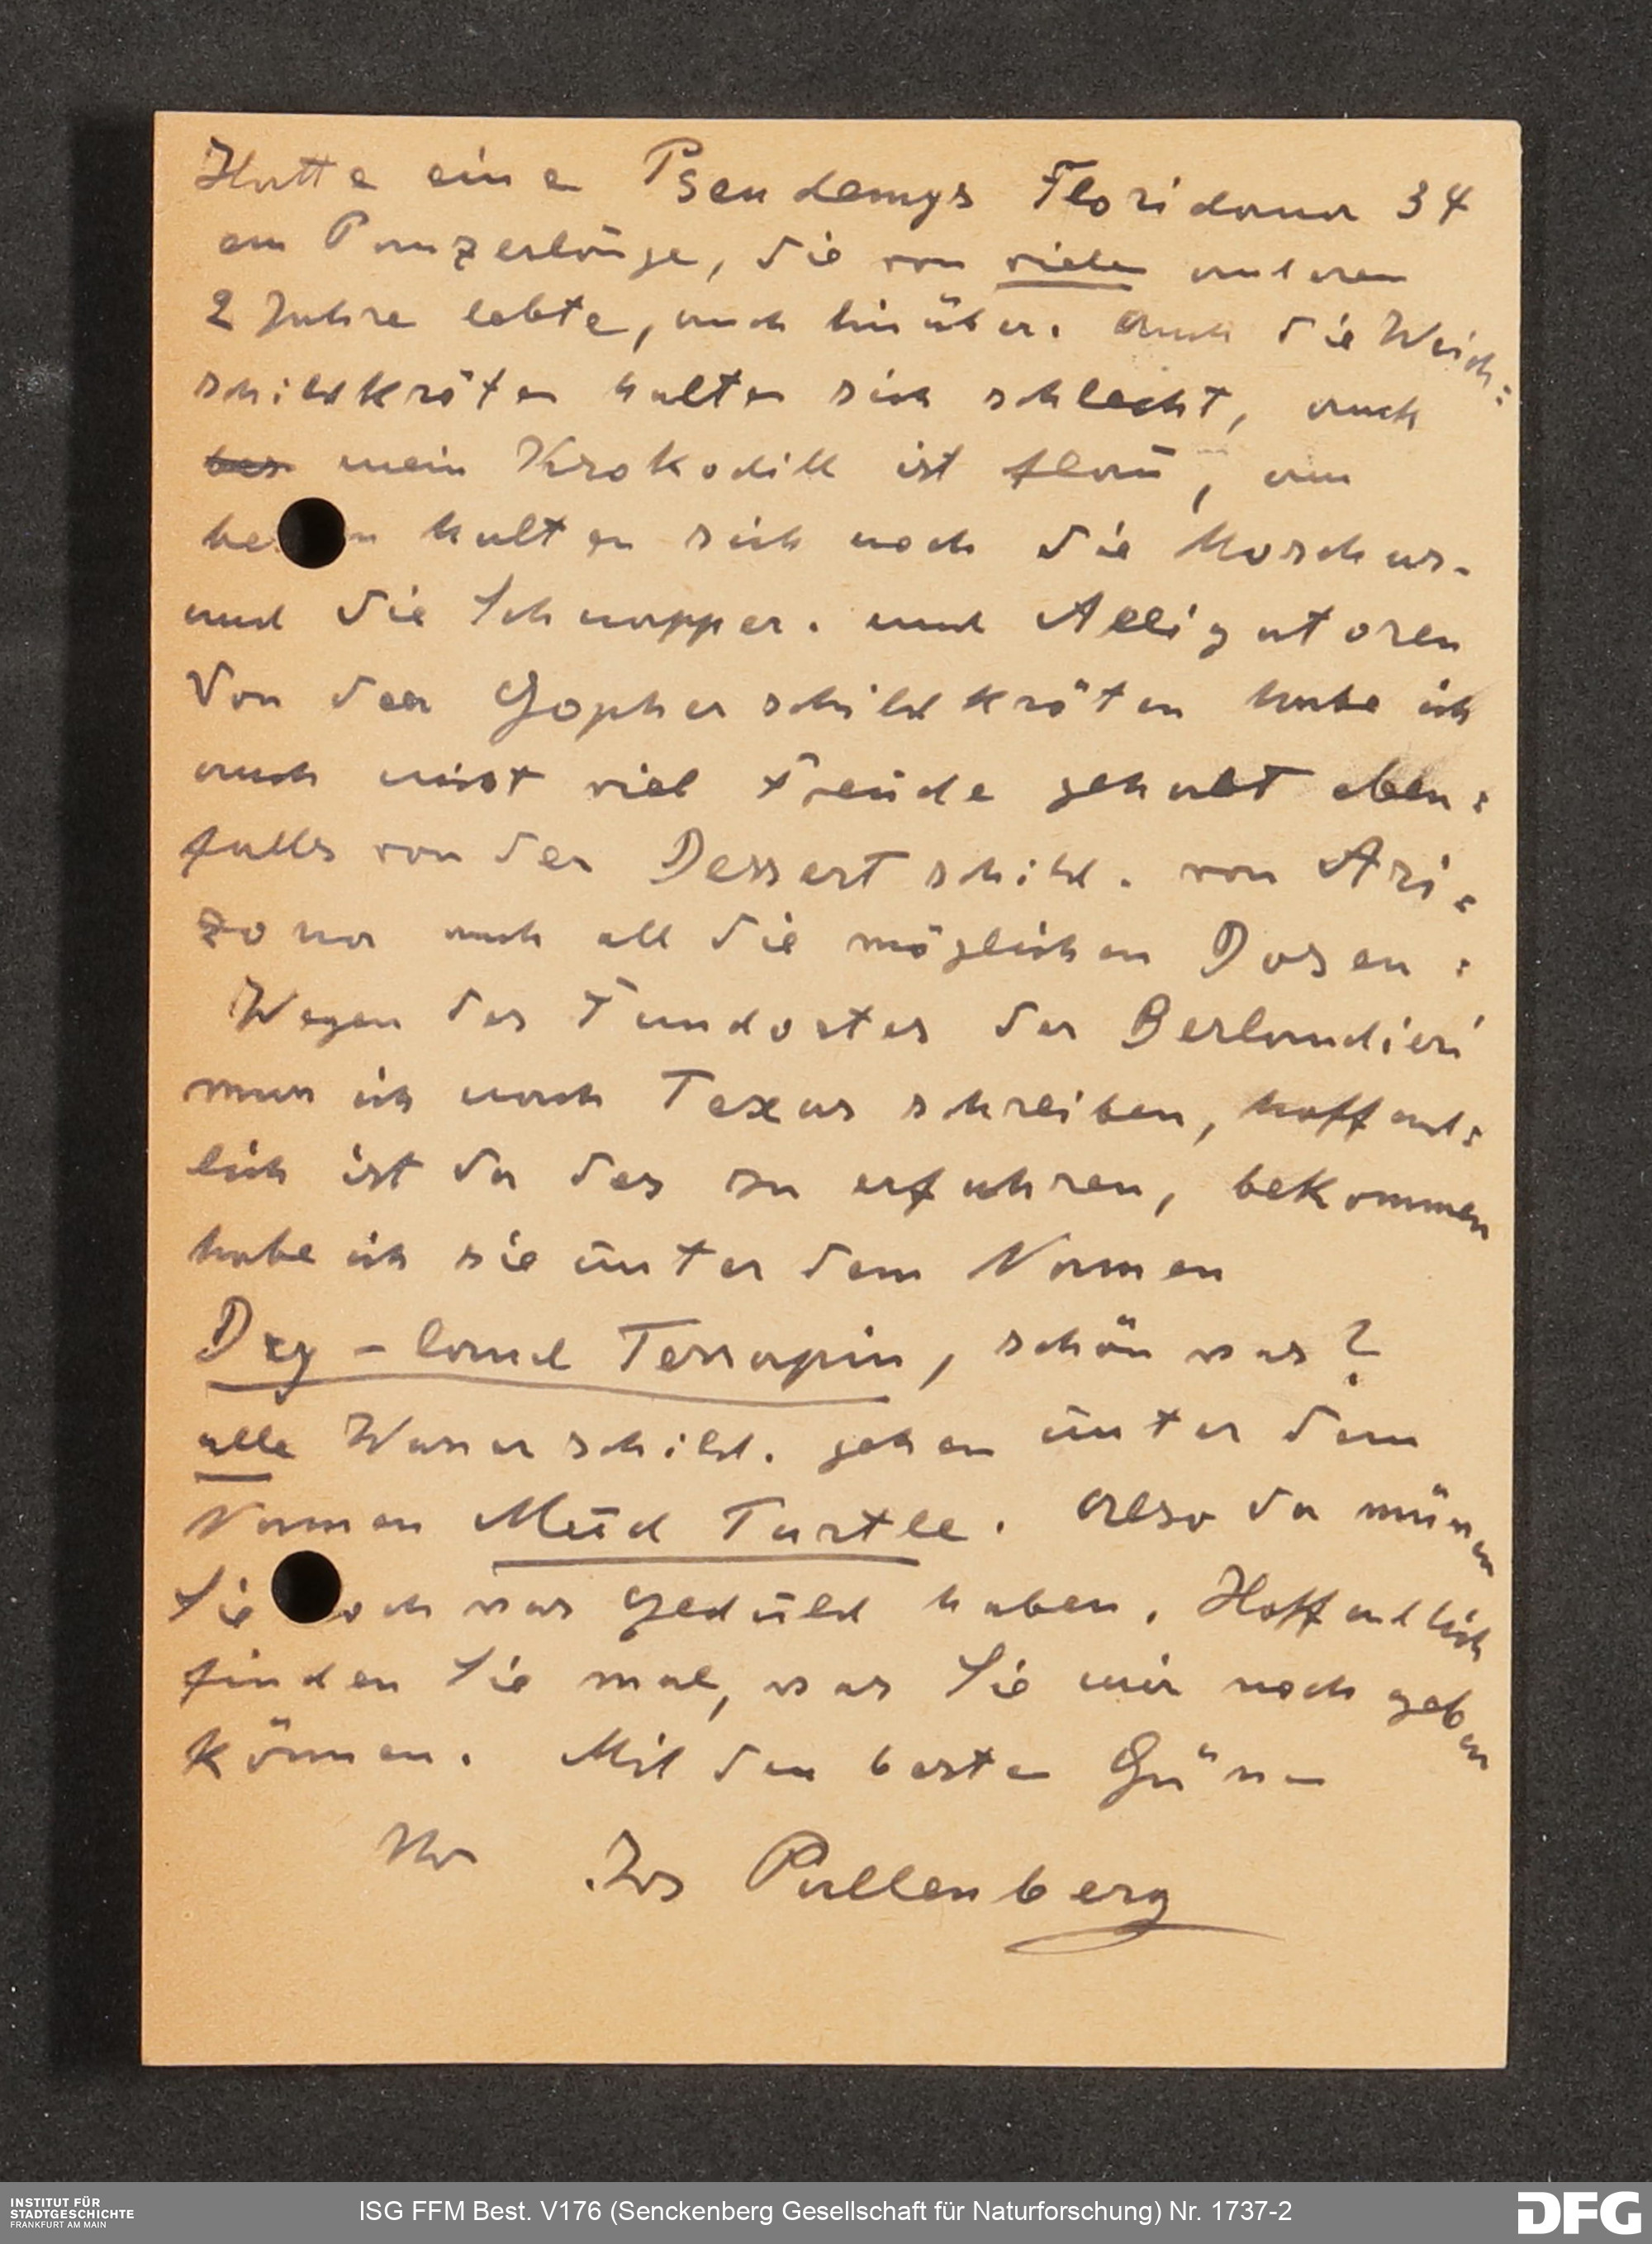 Hatte eine Pseudemys Floridana 34
cm Panzerlänge, die von vielen anderen
2 Jahre lebte, auch hinüber. Auch die Weich:
schildkröten halten sich schlecht, auch
bes mein Krokodill ist flau, am
be n halten sich noch die Moschus-
und die Schnapper. und Alligatoren
Von den Gopherschildkröten habe ich
auch nicht viel Freude gehabt eben:
falls von der Dessertschild. von Ari:
zona auch all die möglichen Dosen:
Wegen des Fundortes der Berlandieri
muss ich nach Texas schreiben, hoffend:
lich ist da das zu erfahren, bekommen
habe ich sie unter dem Namen
Dry-land Terrapin, schön was?
alle Wasserschild. gehen unter dem
Namen Mud Turtle. Also da müssen
Sie och was Geduld haben. Hoffendlich
finden Sie mal, was Sie mir noch geben
können. Mit den besten Grüssen
Ihr Jos Pallenberg
INSTITUT FÜR
STADTGESCHICHTE
FRANKFURT AM MAIN
ISG FFM Best. V176 (Senckenberg Gesellschaft für Naturforschung) Nr. 1737-2
DFG